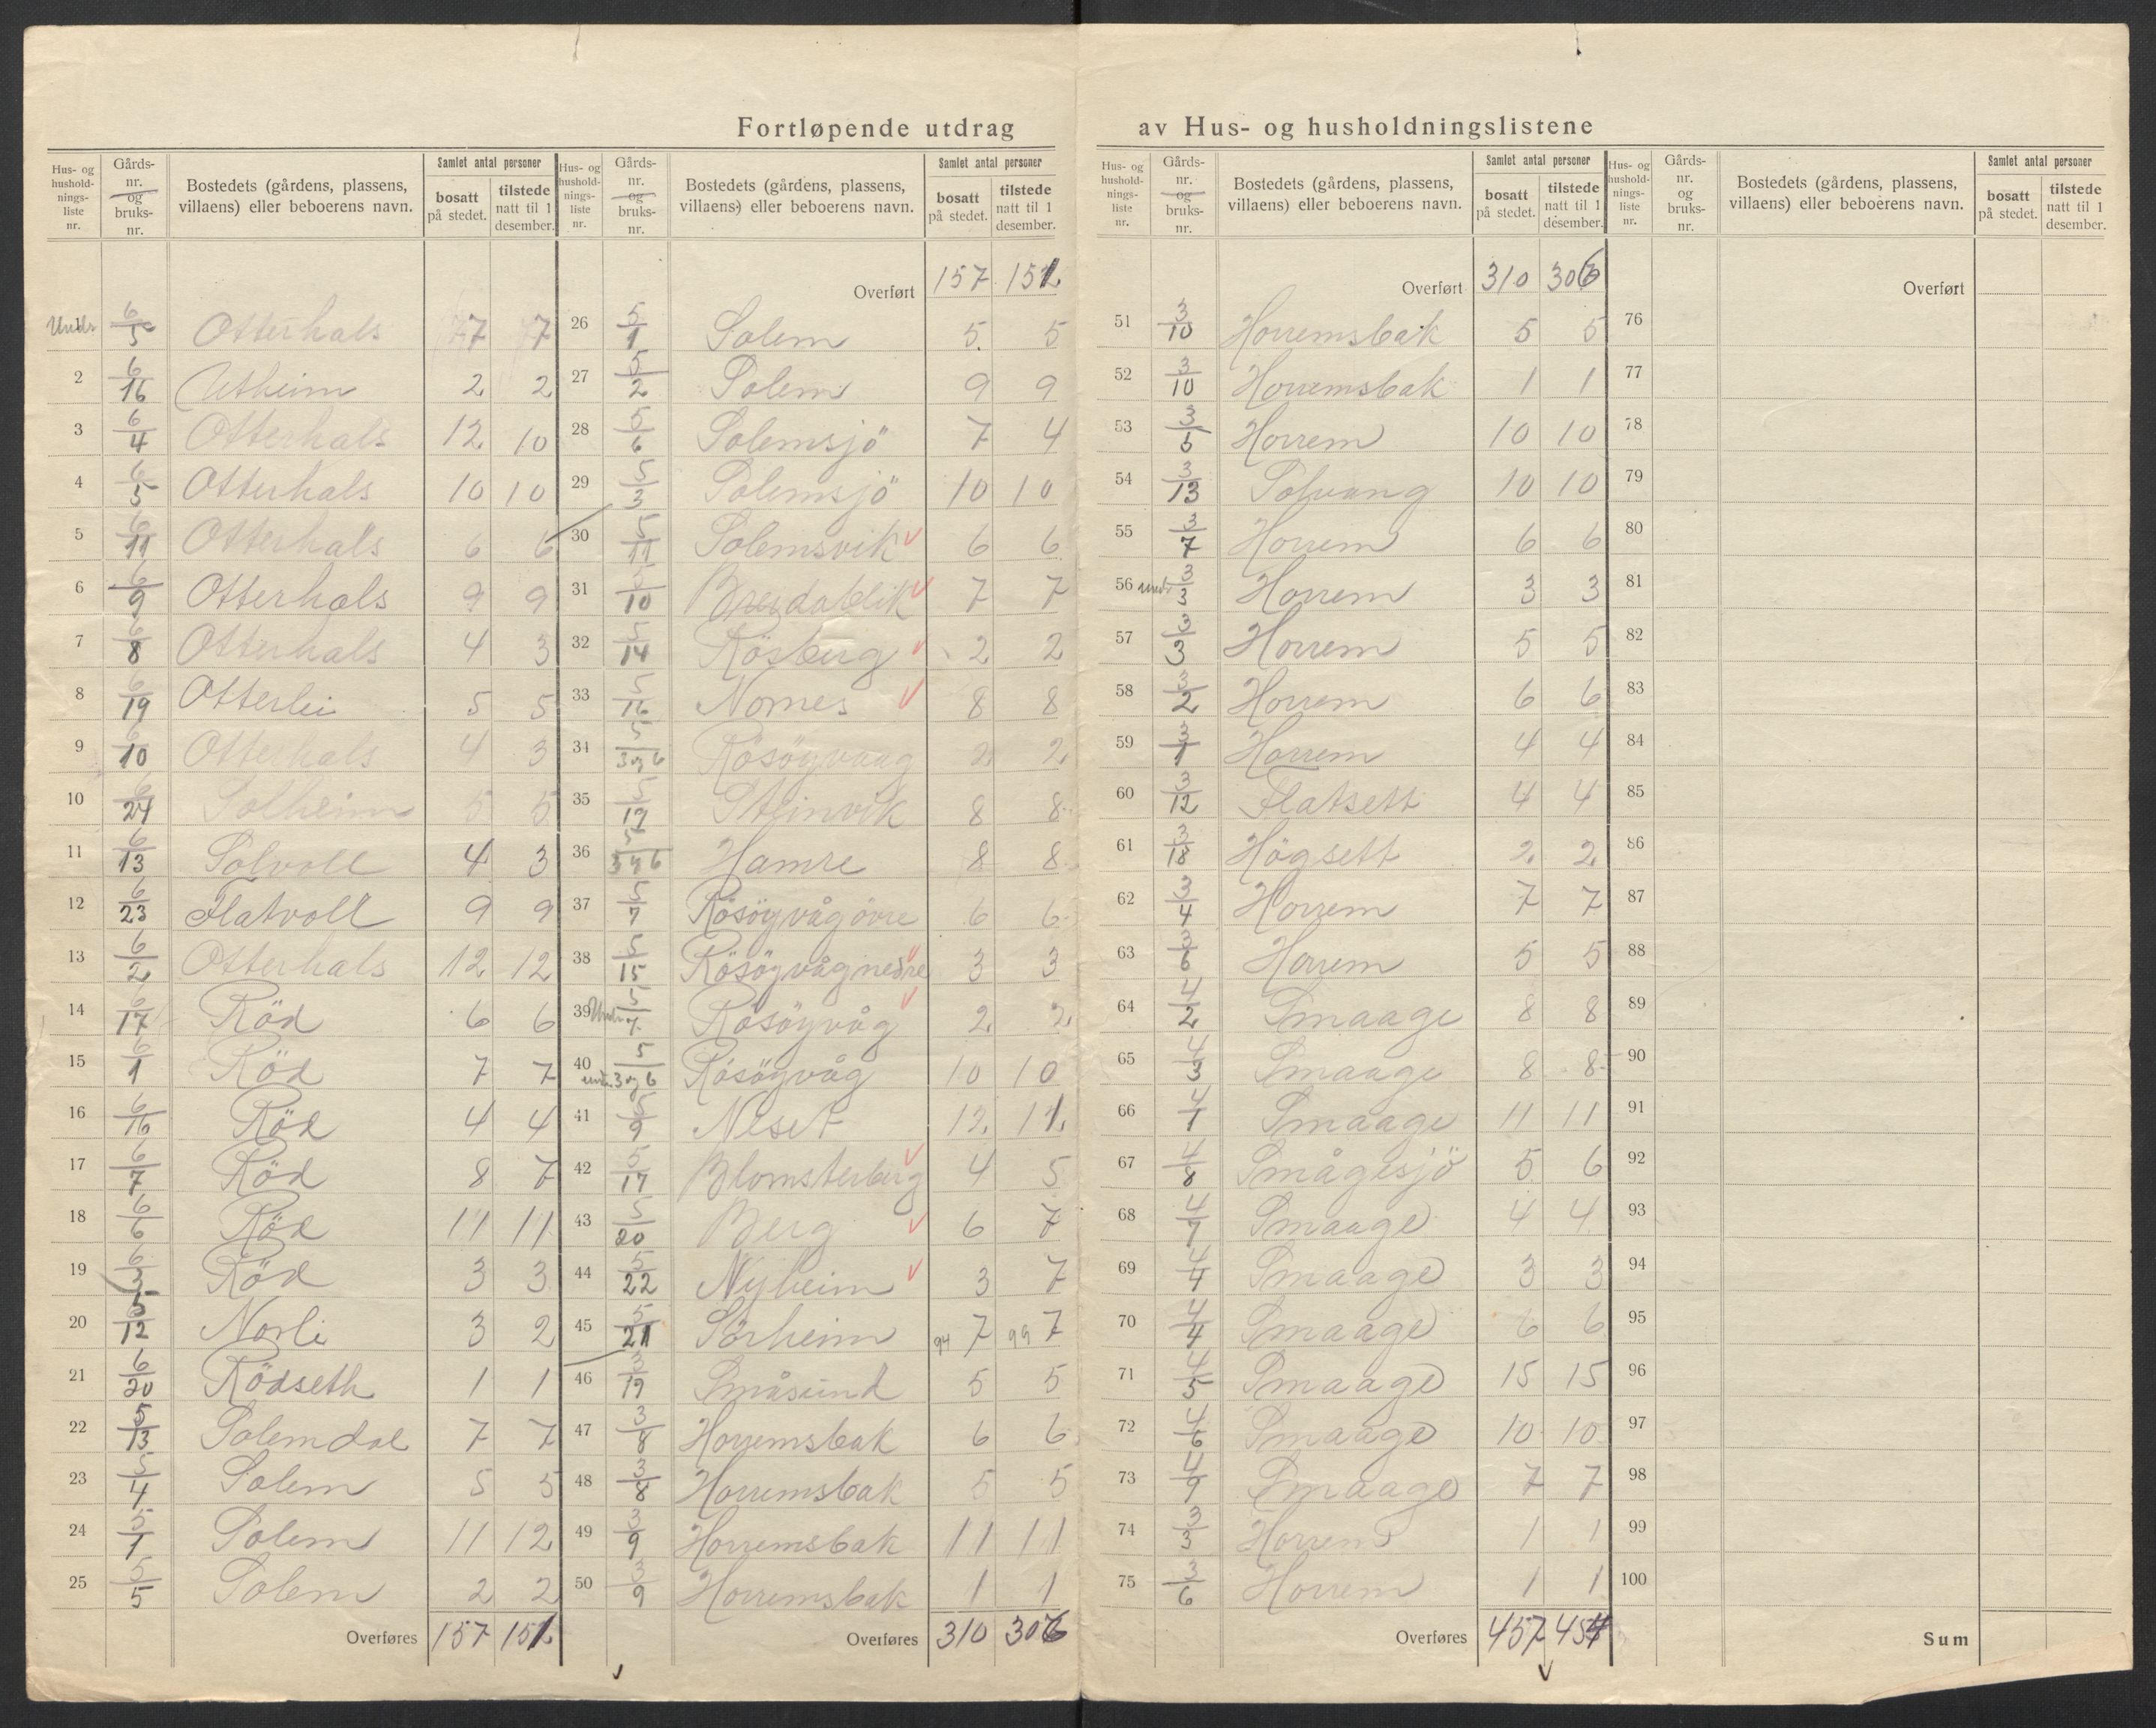 Fortløpende utdrag av Hus- og husholdningslistene
Hus- og hushold-nings-liste nr. | Gårds-nr. og bruks-nr. | Bostedets (gårdens, plassens, villaens) eller beboerens navn. | Samlet antal personer | bosatt på stedet. | tilstede natt til 1 desember.
Undr. 6/5 Otterhals 7 7
2 6/16 Utheim 2 2
3 6/4 Otterhals 12 10
4 6/5 Otterhals 10 10
5 6/11 Otterhals 6 6
6 6/9 Otterhals 9 9
7 6/8 Otterhals 4 3
8 6/19 Otterlei 5 5
9 6/10 Otterhals 4 3
10 6/24 Solheim 5 5
11 6/13 Solvoll 4 3
12 6/23 Flatvoll 9 9
13 6/2 Otterhals 12 12
14 6/17 Röd 6 6
15 6/1 Röd 7 7
16 6/16 Röd 4 4
17 6/7 Röd 8 7
18 6/6 Röd 11 11
19 6/3 Röd 3 3
20 5/12 Norli 3 2
21 6/20 Rödseth 1 1
22 5/13 Solemdal 7 7
23 5/4 Solem 5 5
24 5/1 Solem 11 12
25 5/5 Solem 2 2
Overføres 157 151
Hus- og hushold-nings-liste nr. | Gårds-nr. og bruks-nr. | Bostedets (gårdens, plassens, villaens) eller beboerens navn. | Samlet antal personer | bosatt på stedet. | tilstede natt til 1 desember.
Overført 157 151
26 5/1 Solem 5 5
27 5/2 Solem 9 9
28 5/6 Solemsjö 7 4
29 5/3 Solemsjö 10 10
30 5/11 Solemsvik 6 6
31 5/10 Breidablik 7 7
32 5/14 Rösberg 2 2
33 5/16 Nornes 8 8
34 5/3 og 6 Rösöyvaag 2 2
35 5/19 Steinvik 8 8
36 5/3 og 6 Hamre 8 8
37 5/7 Rösöyvåg övre 6 6
38 5/15 Rösöyvåg nedre 3 3
39 Undr. 5/7 Rösöyvåg 2 2
40 undr. 5/3 og 6 Rösöyvåg 10 10
41 5/9 Neset 12 11
42 5/17 Blomsterberg 4 5
43 5/20 Berg 6 7
44 5/22 Nyheim 3 7
45 5/21 Sörheim 94 7 99 7
46 3/19 Småsund 5 5
47 3/8 Horremsbak 6 6
48 3/8 Horremsbak 5 5
49 3/9 Horremsbak 11 11
50 3/9 Horremsbak 1 1
Overføres 310 306
Hus- og hushold-nings-liste nr. | Gårds-nr. og bruks-nr. | Bostedets (gårdens, plassens, villaens) eller beboerens navn. | Samlet antal personer | bosatt på stedet. | tilstede natt til 1 desember.
Overført 310 306
51 3/10 Horremsbak 5 5
52 3/10 Horremsbak 1 1
53 3/5 Horrem 10 10
54 3/13 Solvang 10 10
55 3/7 Horrem 6 6
56 undr. 3/3 Horrem 3 3
57 3/3 Horrem 5 5
58 3/2 Horrem 6 6
59 3/1 Horrem 4 4
60 3/12 Flatsett 4 4
61 3/18 Högsett 2 2
62 3/4 Horrem 7 7
63 3/6 Horrem 5 5
64 4/2 Smaage 8 8
65 4/3 Smaage 8 8
66 4/1 Smaage 11 11
67 4/8 Smågesjö 5 6
68 4/7 Smaage 4 4
69 4/4 Smaage 3 3
70 4/4 Smaage 6 6
71 4/5 Smaage 15 15
72 4/6 Smaage 10 10
73 4/9 Smaage 7 7
74 3/3 Horrem 1 1
75 3/6 Horrem 1 1
Overføres 457 454
Hus- og hushold-nings-liste nr. | Gårds-nr. og bruks-nr. | Bostedets (gårdens, plassens, villaens) eller beboerens navn. | Samlet antal personer | bosatt på stedet. | tilstede natt til 1 desember.
Overført
76
77
78
79
80
81
82
83
84
85
86
87
88
89
90
91
92
93
94
95
96
97
98
99
100
Sum